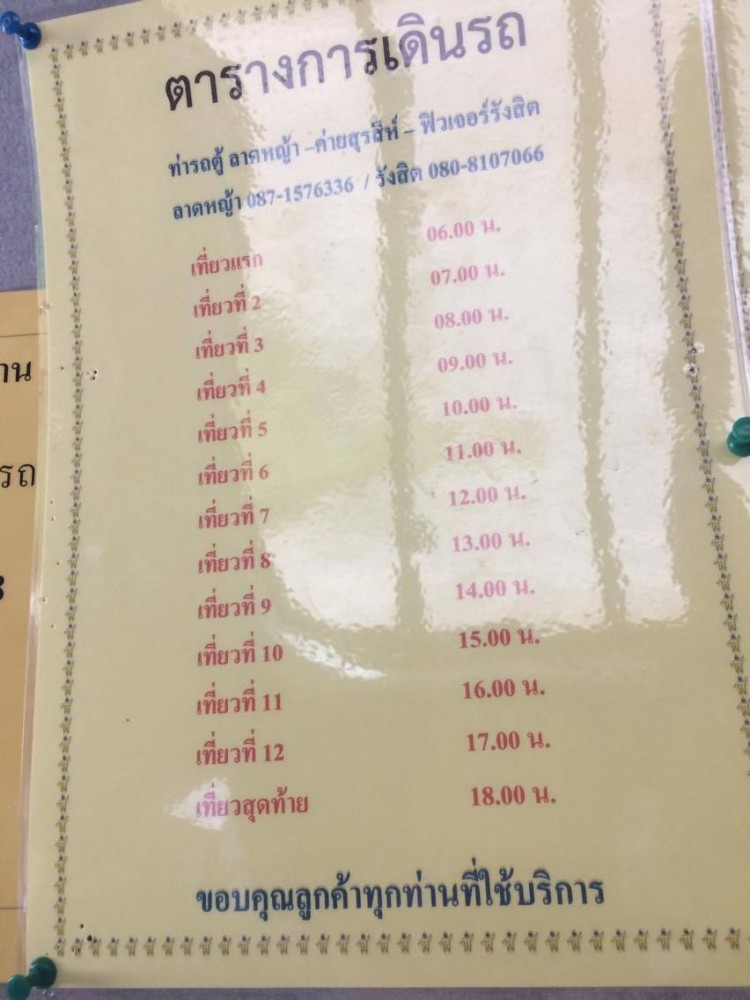 ตารางการเดินรถ
ท่ารถตู้ ลาดหญ้า –ค่ายสุรสีห์ – ฟิวเจอร์รังสิต
ลาดหญ้า 087-1576336 / รังสิต 080-8107066
เที่ยวแรก 06.00 น.
เที่ยวที่ 2 07.00 น.
เที่ยวที่ 3 08.00 น.
เที่ยวที่ 4 09.00 น.
เที่ยวที่ 5 10.00 น.
เที่ยวที่ 6 11.00 น.
เที่ยวที่ 7 12.00 น.
เที่ยวที่ 8 13.00 น.
เที่ยวที่ 9 14.00 น.
เที่ยวที่ 10 15.00 น.
เที่ยวที่ 11 16.00 น.
เที่ยวที่ 12 17.00 น.
เที่ยวสุดท้าย 18.00 น.
ขอบคุณลูกค้าทุกท่านที่ใช้บริการ
รถ